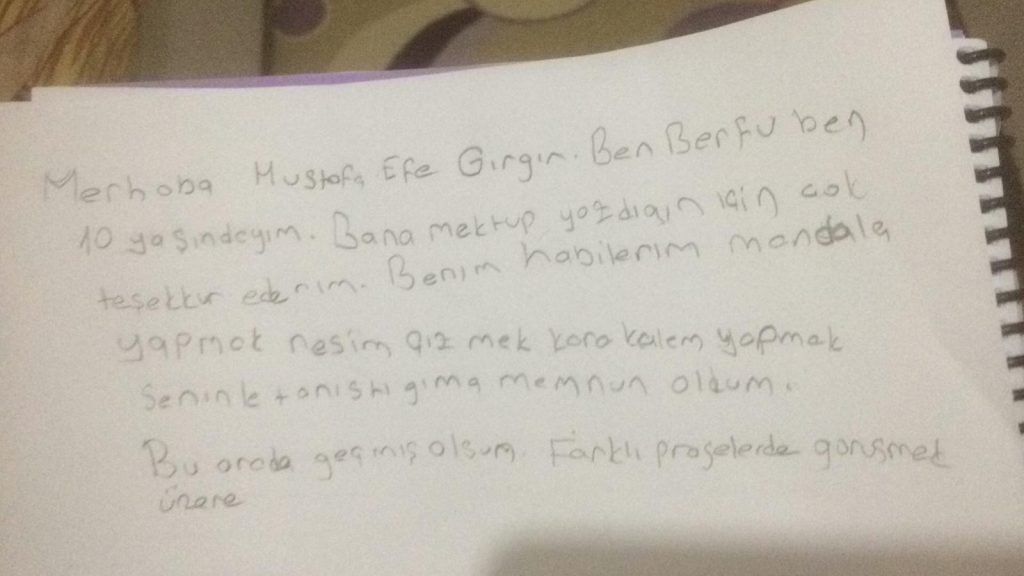 Merhoba Mustafa Efe Girgin. Ben Berfu ben
10 yaşındayım. Bana mektup yazdıgın için çok
teşekkur ederım. Benım habilerim mandala
yapmak nesim çiz mek kara kalem yapmak
Senınle tanıştıgıma memnun oldum.
Bu arada geçmiş olsun. Farklı projelerde görüşmek
üzere